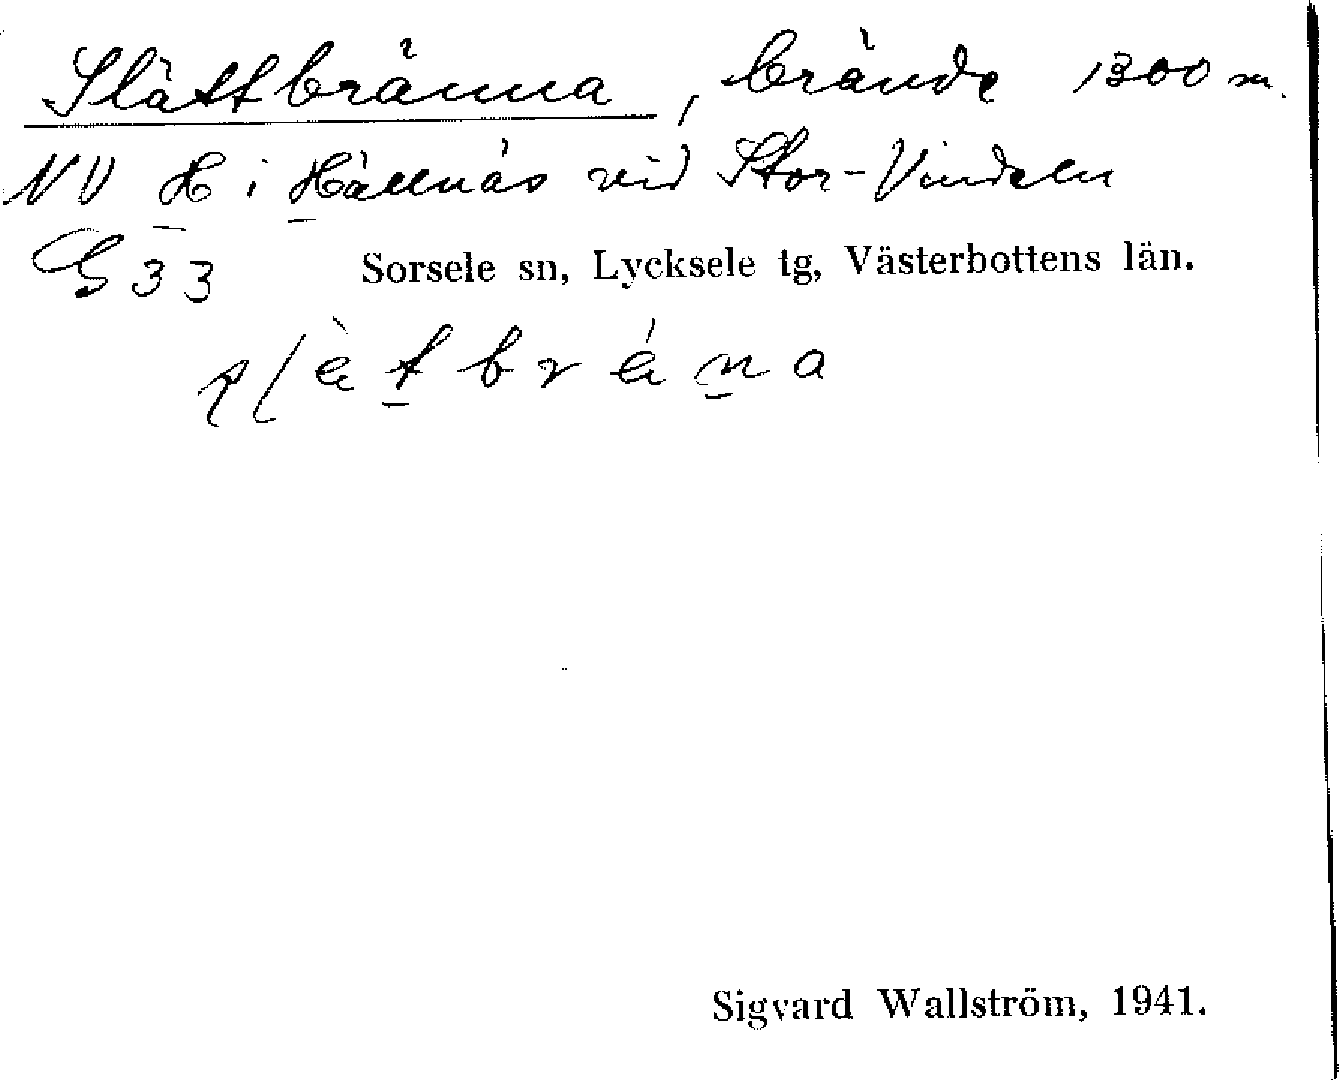 Slättbränna, brände 1300 m.
NV H i Hällnäs vid Stor-Vindeln
G 33 Sorsele sn, Lycksele tg, Västerbottens län.
Sigvard Wallström, 1941.